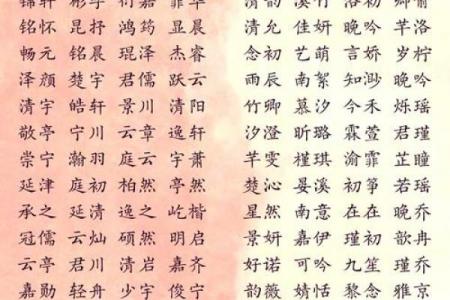 锦轩 彬宇 衍嘉 霏华 清韵 溪竹 洛初 卿俞
铭怀 昆抒 鸿筠 显晨 清允 佳妍 晚吟 芊洛
畅元 铭晨 琨泽 杰睿 念初 艺萌 言娇 岁柠
泽颜 楚宇 君儒 跃云 雨辰 南絮 知渺 晚吟
清宇 皓轩 景川 清阳 竹卿 慕汐 今禾 烁瑶
敬亭 宁川 云章 逸轩 汐澄 昕璐 霖萱 君瑾
崇宁 瀚羽 庭云 宇萧 芊雯 槿琪 渝霏 芷瞳
延津 庭初 柏然 亭然 楚沁 晏溪 初筝 若瑶
承之 延清 逸之 屹楷 星然 南意 在在 晚乔
冠儒 云灿 硕然 明启 景妍 嘉伊 瑾初 歆冉
云亭 君川 清岩 嘉齐 好诺 可吟 九笙 雅瑶
嘉勋 轻舟 少宇 俊宁 韵薇 婧恬 黎念 雅京